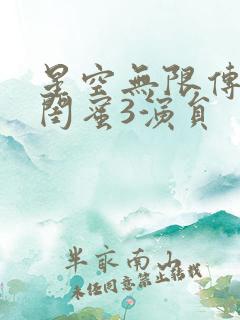 星空無限傳
閨蜜3-演員
半畝南山
未经同意禁止转载